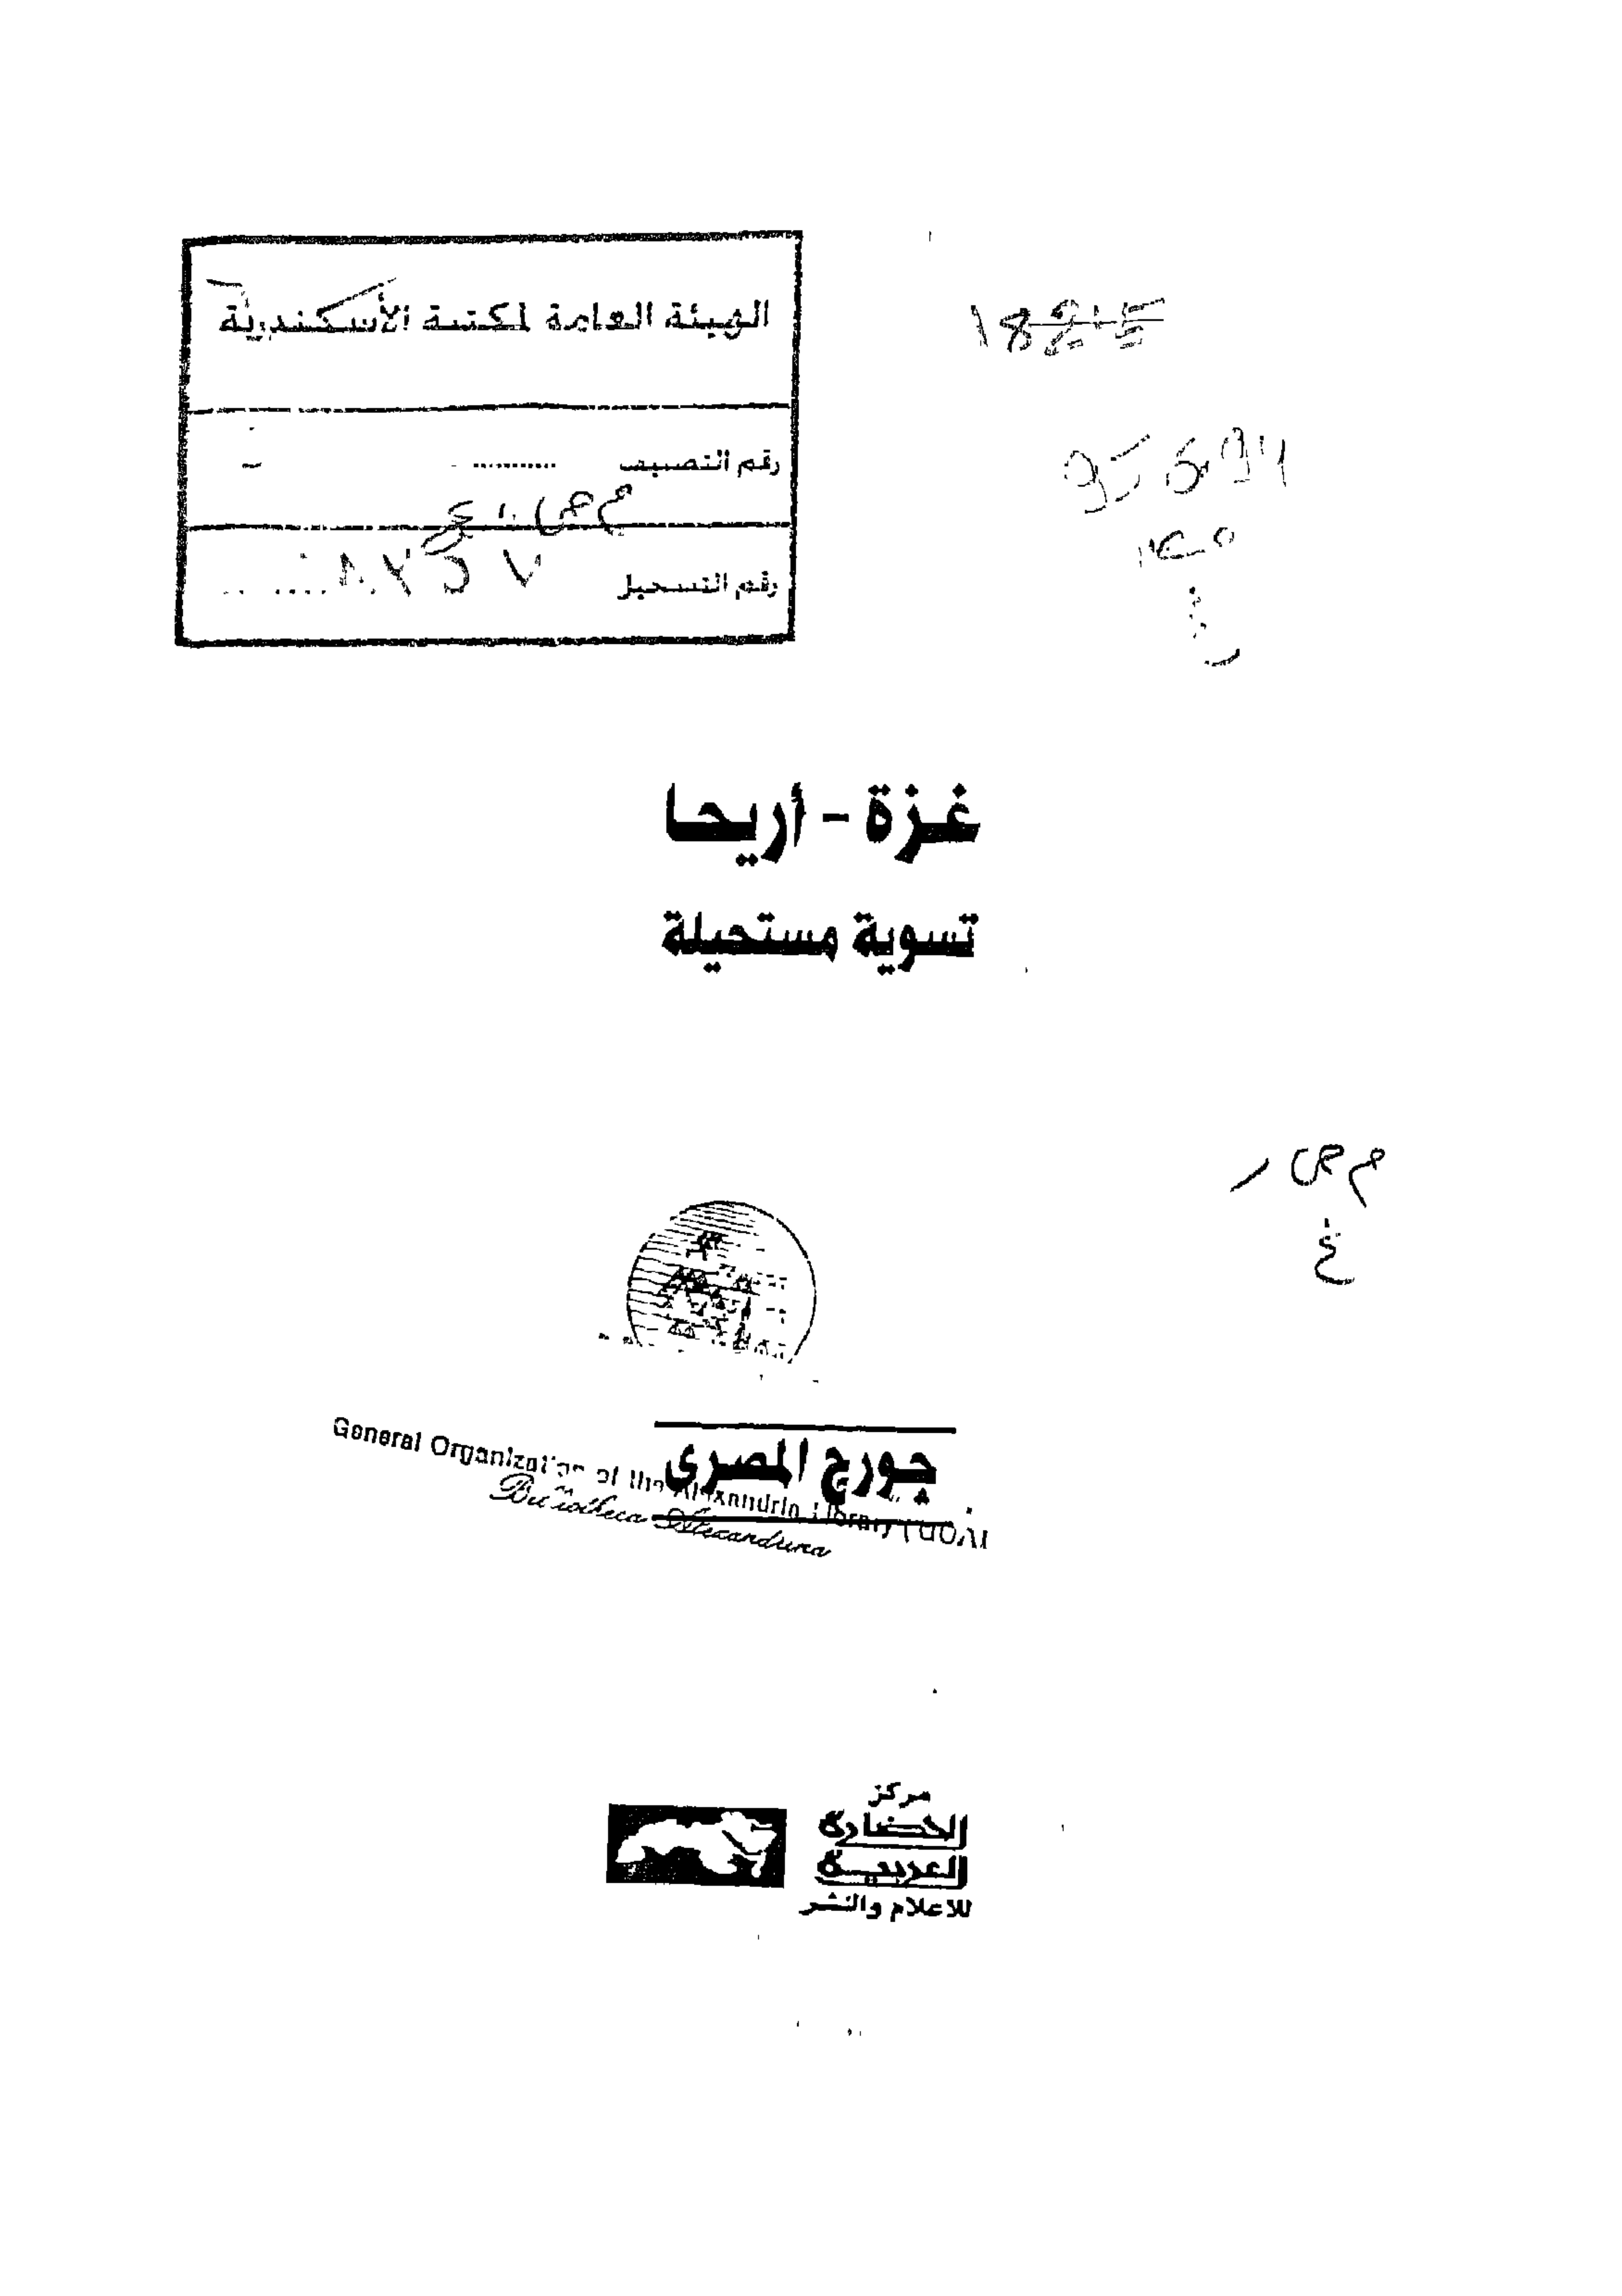 الهيئة العامة لمكتبة الأسكندرية
رقم التصنيف
رقم التسجيل
غزة - أريحا
تسوية مستحيلة
م ص ر
غ
جورج المصرى
General Organization of the Alexandria Library (GOAL
Bibliotheca Alexandrina
مركز
الحضارة
العربية
للاعلام والنشر